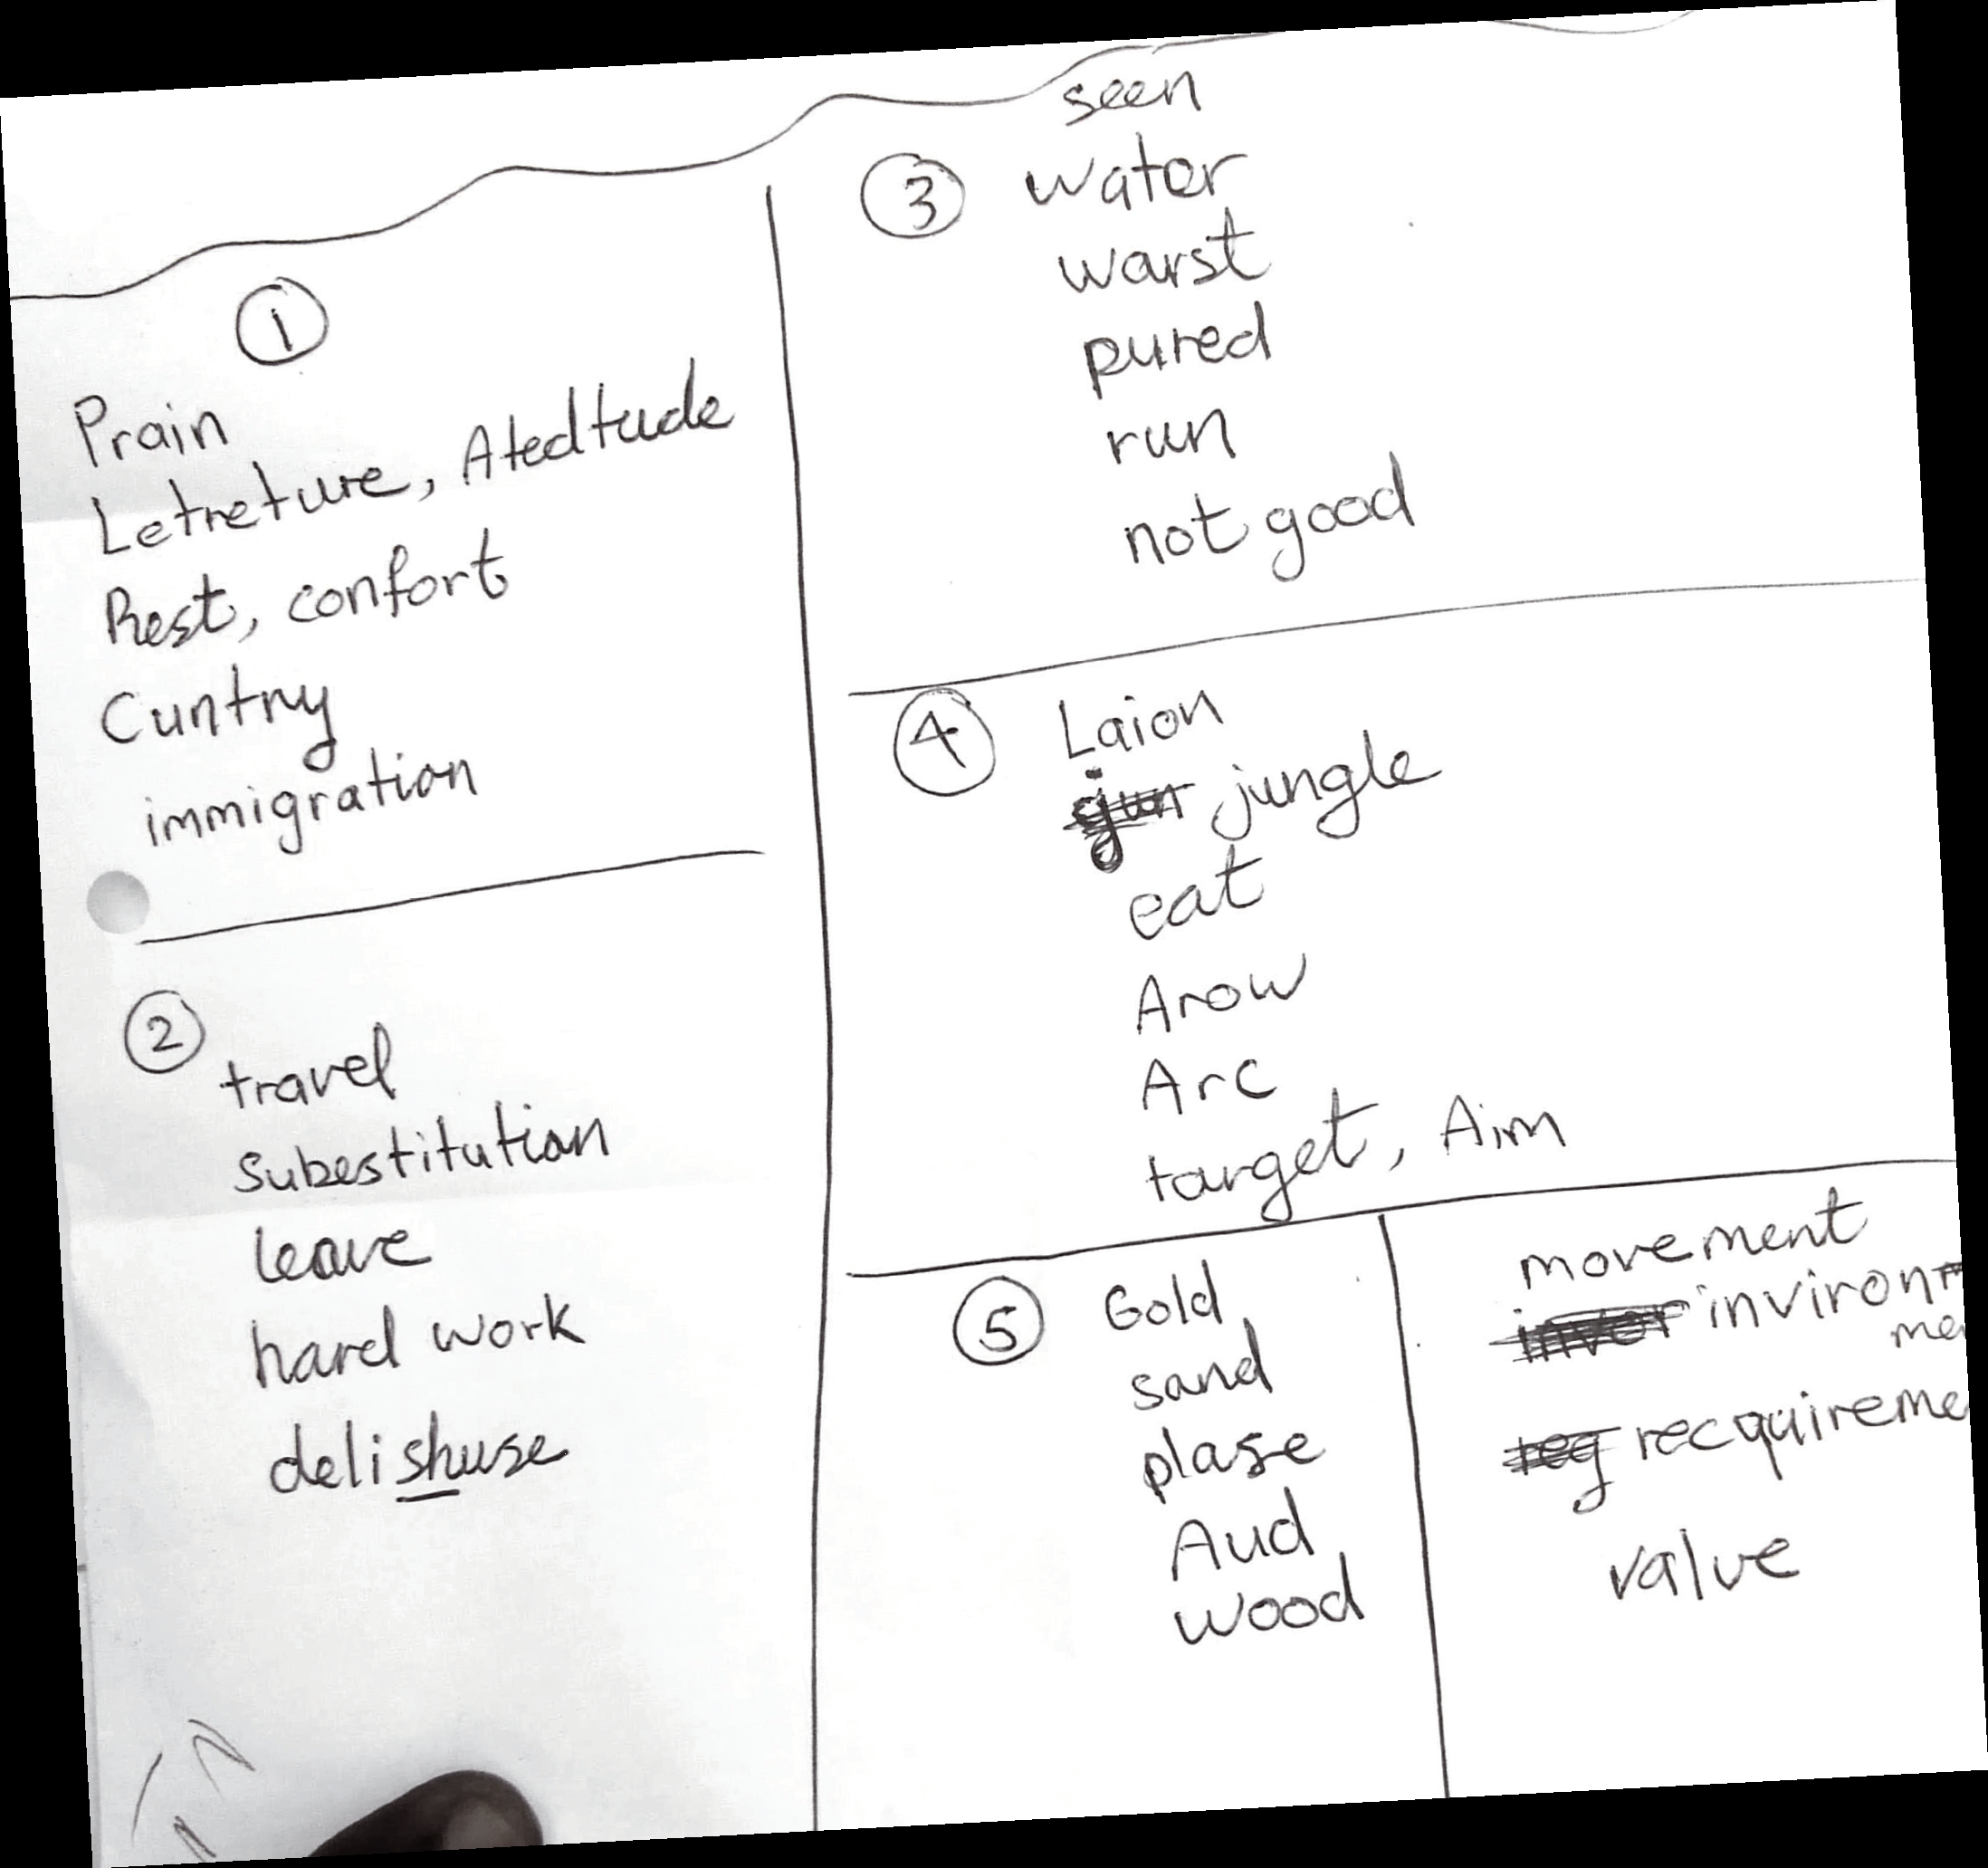 1
Prain
Letreture, Atedtude
Rest, confort
Cuntry
immigration
2
travel
Subestitution
leave
hard work
delishuse
seen
3 water
warst
pured
run
not good
4 Laion
jungle
eat
Arow
Arc
target, Aim
5 Gold
sand
plase
Aud
wood
movement
environ
me
recquireme
value